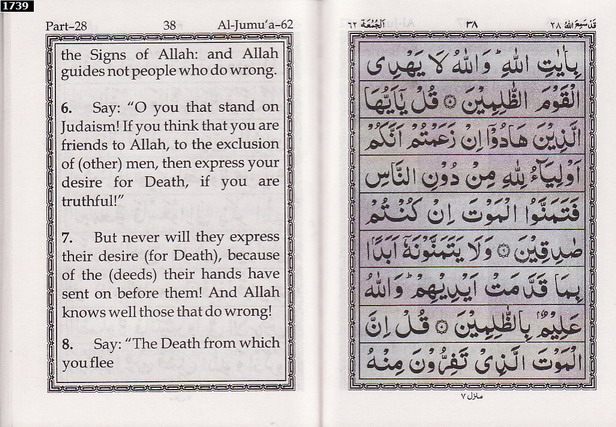 1739
Part-28 38 Al-Jumu'a-62
the Signs of Allah: and Allah
guides not people who do wrong.
6. Say: "O you that stand on
Judaism! If you think that you are
friends to Allah, to the exclusion
of (other) men, then express your
desire for Death, if you are
truthful!"
7. But never will they express
their desire (for Death), because
of the (deeds) their hands have
sent on before them! And Allah
knows well those that do wrong!
8. Say: "The Death from which
you flee
اَلْجُمُعَة ٦٢ ٣٨ قَدْ سَمِعَ اللهُ ٢٨
بِاٰيٰتِ اللّٰهِ ؕ وَاللّٰهُ لَا يَهْدِى
الْقَوْمَ الظّٰلِمِيْنَ ۞ قُلْ يٰٓاَيُّهَا
الَّذِيْنَ هَادُوْٓا اِنْ زَعَمْتُمْ اَنَّكُمْ
اَوْلِيَآءُ لِلّٰهِ مِنْ دُوْنِ النَّاسِ
فَتَمَنَّوُا الْمَوْتَ اِنْ كُنْتُمْ
صٰدِقِيْنَ ۞ وَلَا يَتَمَنَّوْنَهٗٓ اَبَدًۢا
بِمَا قَدَّمَتْ اَيْدِيْهِمْ ؕ وَاللّٰهُ
عَلِيْمٌۢ بِالظّٰلِمِيْنَ ۞ قُلْ اِنَّ
الْمَوْتَ الَّذِىْ تَفِرُّوْنَ مِنْهُ
منزل ٧